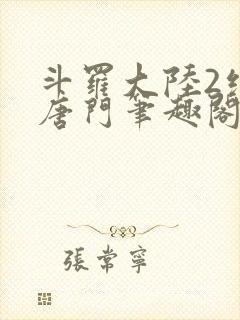 斗羅大陸2
唐門筆趣閣
張常寧